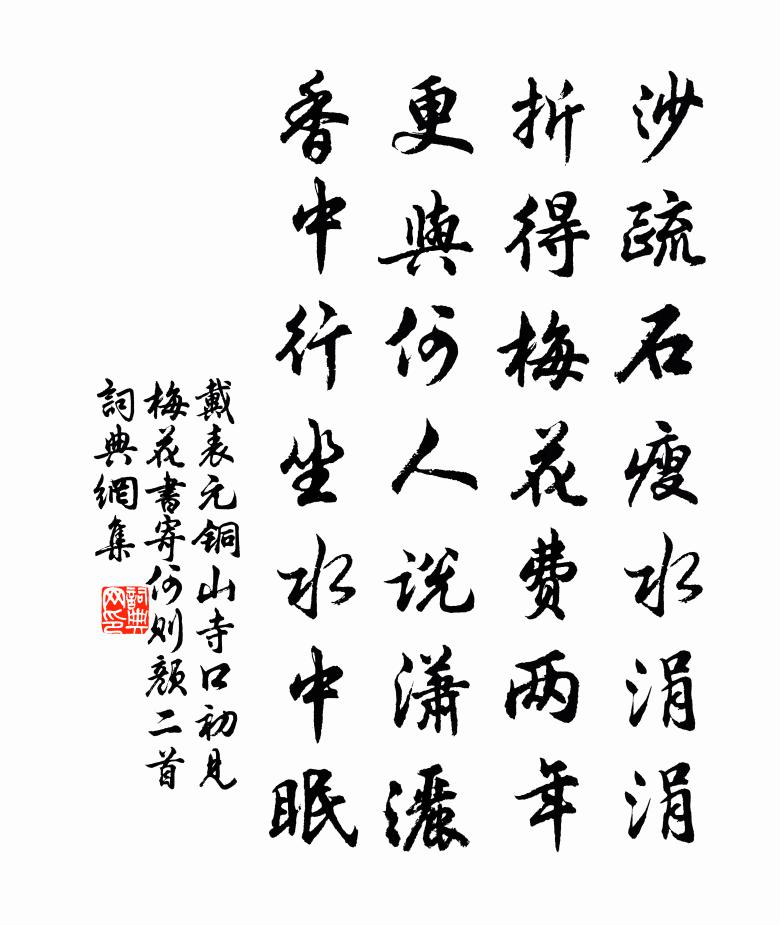 沙疏石瘦水涓涓
折得梅花费两年
更與何人说瀟灑
香中行坐水中眠
戴表元铜山寺口初见
梅花書寄何则颜二首
詞典網集
詞典
网印